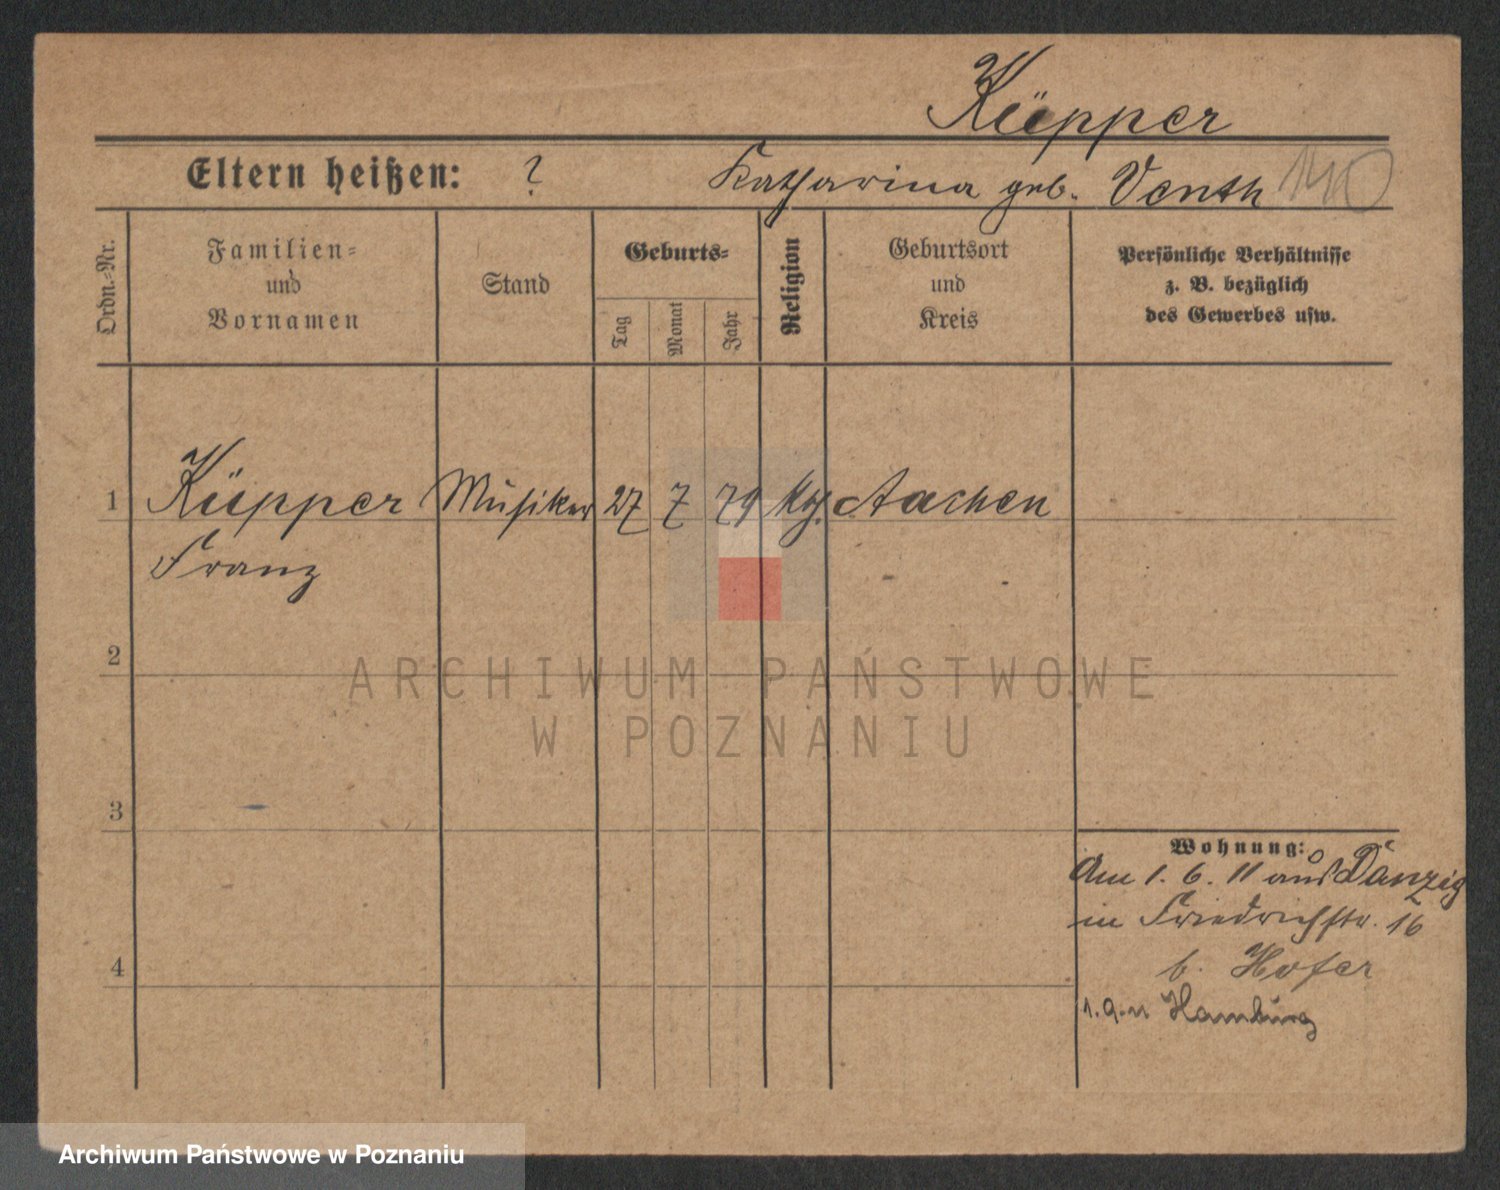 Küpper
Eltern heißen: ? Katharina geb. Venth 140
Ordn.=Nr.
Familien=
und
Vornamen
Stand
Geburts=
Tag
Monat
Jahr
Religion
Geburtsort
und
Kreis
Persönliche Verhältnisse
z. B. bezüglich
des Gewerbes usw.
1 Küpper Musiker 27 7 79 Aachen
Franz
2
3
4
Wohnung:
Am 1. 6. 11 aus Danzig
in Friedrichstr. 16
b. Hofer
1. 9. 11 Hamburg
ARCHIWUM PAŃSTWOWE
W POZNANIU
Archiwum Państwowe w Poznaniu